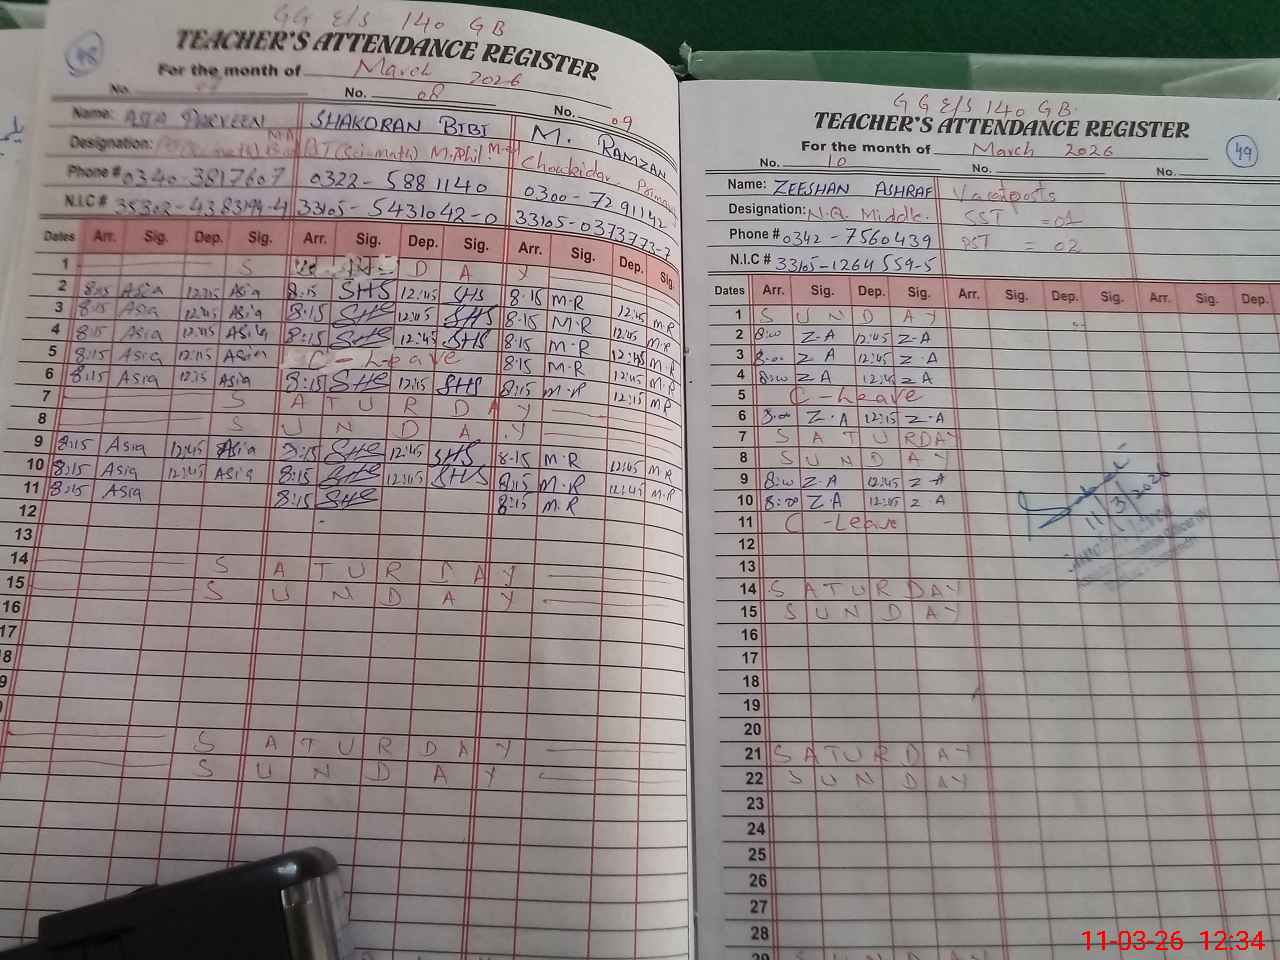 GG E/S 140 GB
TEACHER'S ATTENDANCE REGISTER
48
For the month of March 2026
No. No. 08 No. 09
Name: ASIA PARVEEN SHAKORAN BIBI M. RAMZAN
Designation: PST (Sci-math) M.Phil Chowkidar
Phone # 0340-3817607 0322-5881140 0300-7291142
N.I.C # 35302-4383199-4 33105-5431042-0 33105-0373773-7
Dates Arr. Sig. Dep. Sig. Arr. Sig. Dep. Sig. Arr. Sig. Dep. Sig.
1 S D A Y
2 8:15 Asia 12:45 Asia 8:15 SHS 12:45 SHS 8:15 M.R 12:45 M.R
3 8:15 Asia 12:45 Asia 8:15 SHS 12:45 SHS 8:15 M.R 12:45 M.R
4 8:15 Asia 12:45 Asia 8:15 SHS 12:45 SHS 8:15 M.R 12:45 M.R
5 8:15 Asia 12:45 Asia C-Leave 8:15 M.R 12:45 M.R
6 8:15 Asia 12:15 Asia 8:15 SHS 12:15 SHS 8:15 M.R 12:15 M.R
7 S A T U R D A Y
8 S U N D A Y
9 8:15 Asia 12:45 Asia 8:15 SHS 12:45 SHS 8:15 M.R 12:45 M.R
10 8:15 Asia 12:45 Asia 8:15 SHS 12:45 SHS 8:15 M.R 12:45 M.R
11 8:15 Asia 8:15 SHS 8:15 M.R
12
13
14 S A T U R D A Y
15 S U N D A Y
16
17
8
9
S A T U R D A Y
S U N D A Y
GG E/S 140 GB
TEACHER'S ATTENDANCE REGISTER
49
For the month of March 2026
No. 10 No. No.
Name: ZEESHAN ASHRAF Vacant posts
Designation: N.Q. Middle. SST =01
Phone # 0342-7560439 PST = 02
N.I.C # 33105-1264559-5
Dates Arr. Sig. Dep. Sig. Arr. Sig. Dep. Sig. Arr. Sig. Dep.
1 S U N D A Y
2 8:00 Z.A 12:45 Z.A
3 8:00 Z A 12:45 Z.A
4 8:00 Z A 12:45 Z A
5 C-Leave
6 8:00 Z.A 12:15 Z.A
7 S A T U R D A Y
8 S U N D A Y
9 8:00 Z.A 12:45 Z.A
10 8:00 Z.A 12:45 Z.A
11 C-Leave
11/3/2026
12
13
14 S A T U R D A Y
15 S U N D A Y
16
17
18
19
20
21 S A T U R D A Y
22 S U N D A Y
23
24
25
26
27
28
29 S U N D A Y
11-03-26 12:34